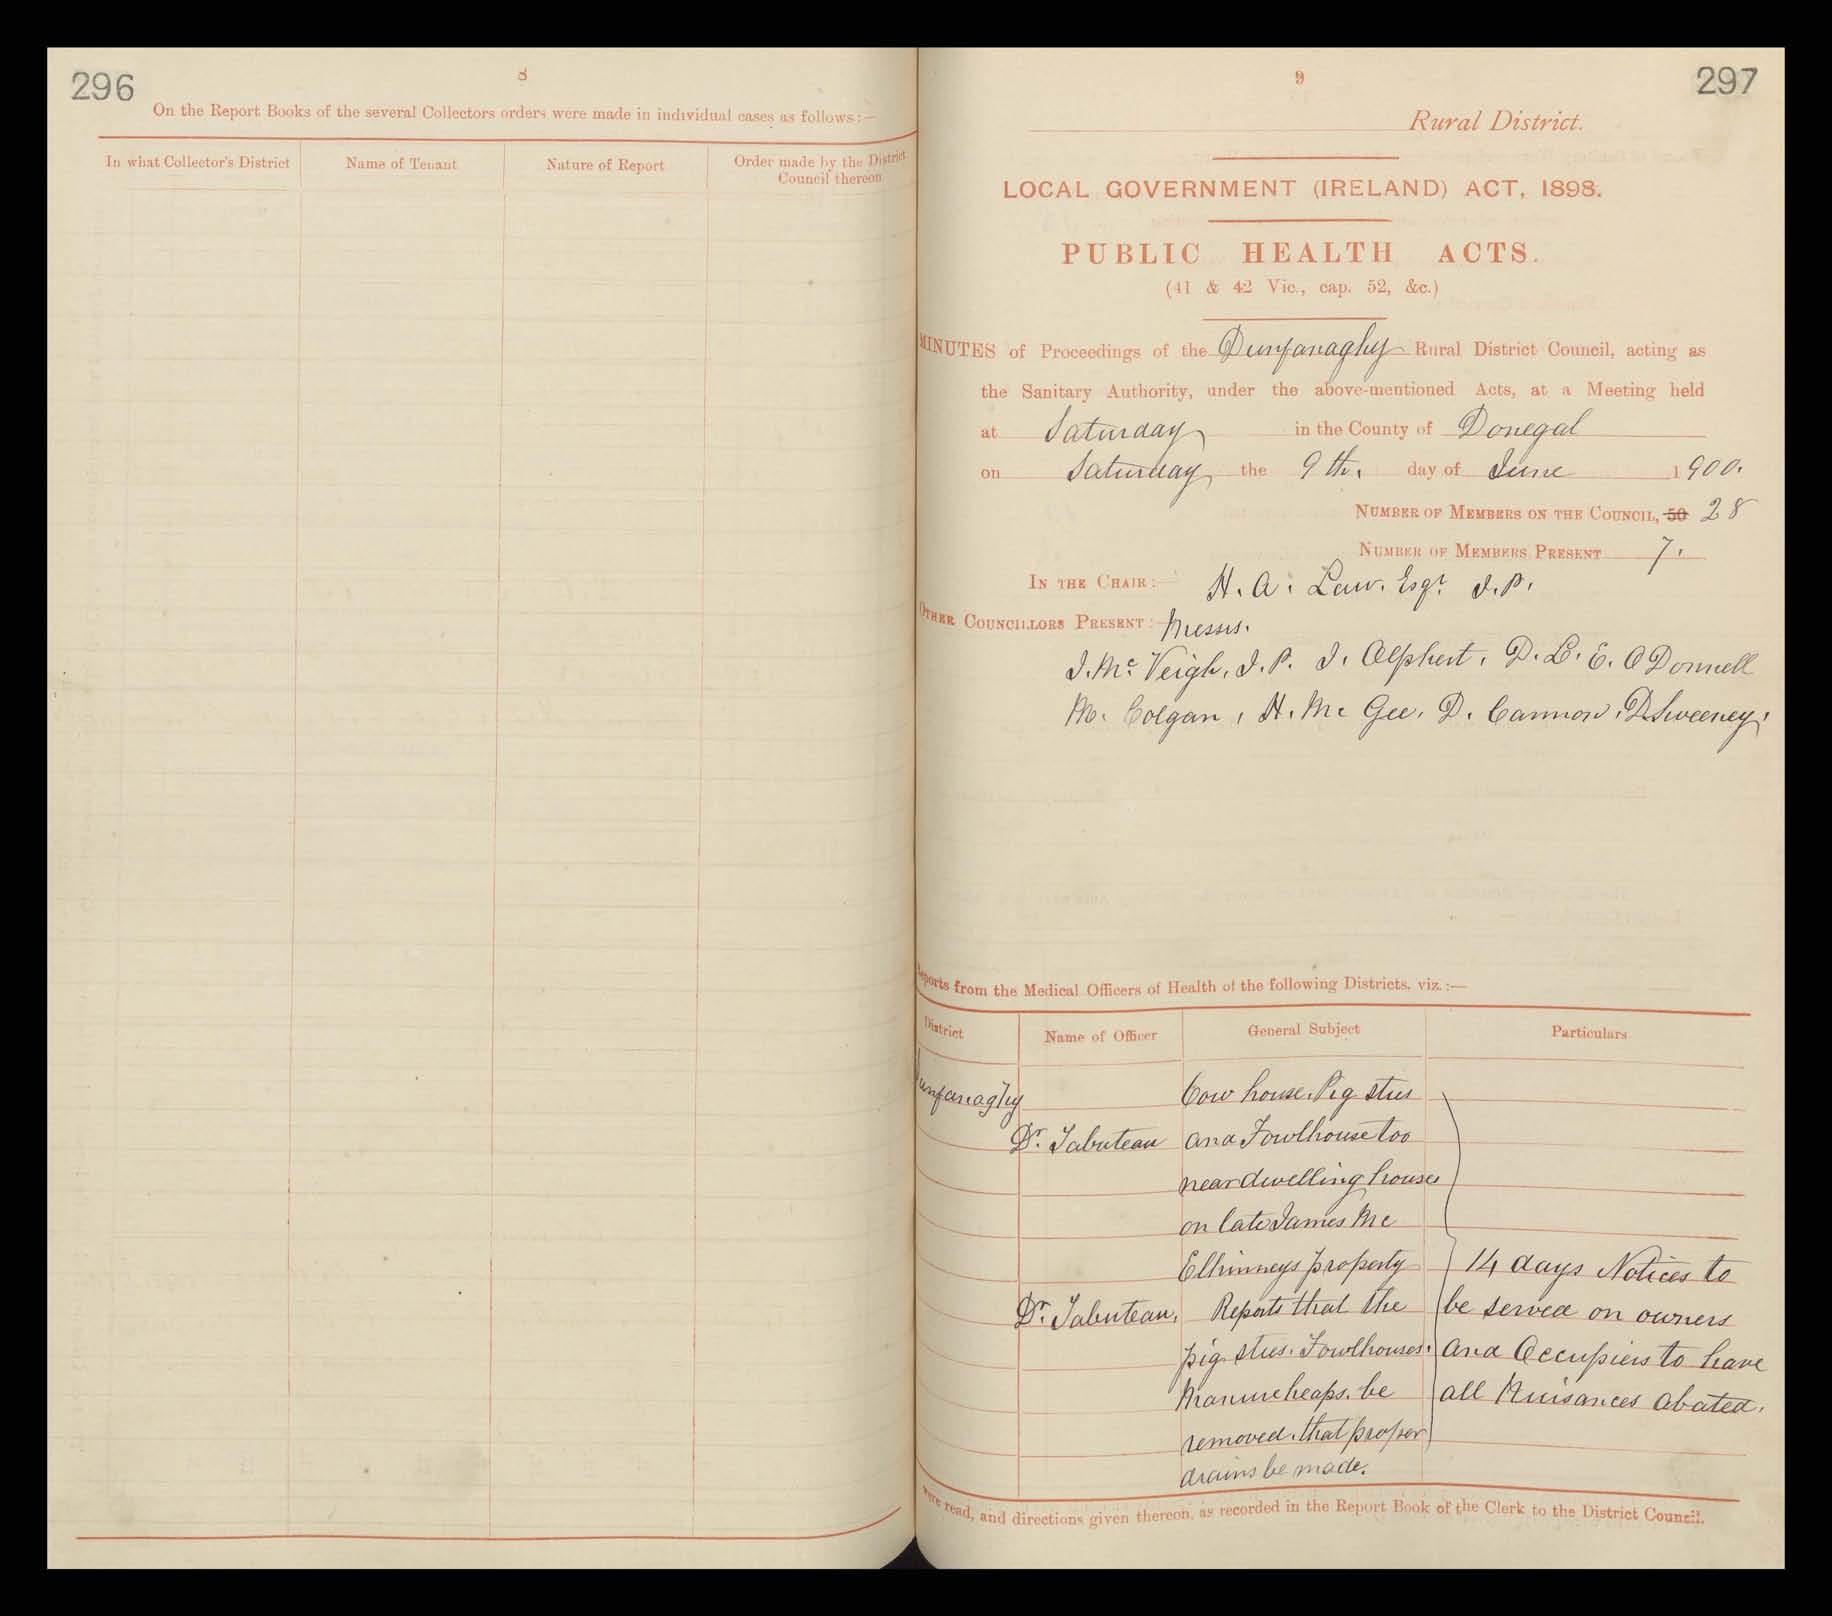 296
8
On the Report Books of the several Collectors orders were made in individual cases as follows:—
In what Collector's District
Name of Tenant
Nature of Report
Order made by the District
Council thereon
297
9
Rural District.
LOCAL GOVERNMENT (IRELAND) ACT, 1898.
PUBLIC HEALTH ACTS.
(41 & 42 Vic., cap. 52, &c.)
MINUTES of Proceedings of the Dunfanaghy Rural District Council, acting as
the Sanitary Authority, under the above-mentioned Acts, at a Meeting held
at Saturday in the County of Donegal
on Saturday, the 9th. day of June 1900.
NUMBER OF MEMBERS ON THE COUNCIL, 50 28
NUMBER OF MEMBERS PRESENT 7.
IN THE CHAIR:— H. A. Law. Esqr. J.P.
OTHER COUNCILLORS PRESENT:— Messrs.
J. Mc Veigh, J.P. J. Olphert, D.L. E. O Donnell
M. Colgan, H. Mc Gee, D. Cannon, D Sweeney,
Reports from the Medical Officers of Health of the following Districts, viz.:—
District
Name of Officer
General Subject
Particulars
Dunfanaghy
Cow house, Pig sties
Dr. Tabuteau and Fowlhouse too
near dwelling houses
on late James Mc
Elhinneys property 14 days Notices to
Dr. Tabuteau, Reports that the be served on owners
pig sties, Fowlhouses, and Occupiers to have
Manure heaps, be all Nuisances abated.
removed, that proper
drains be made.
were read, and directions given thereon, as recorded in the Report Book of the Clerk to the District Council.